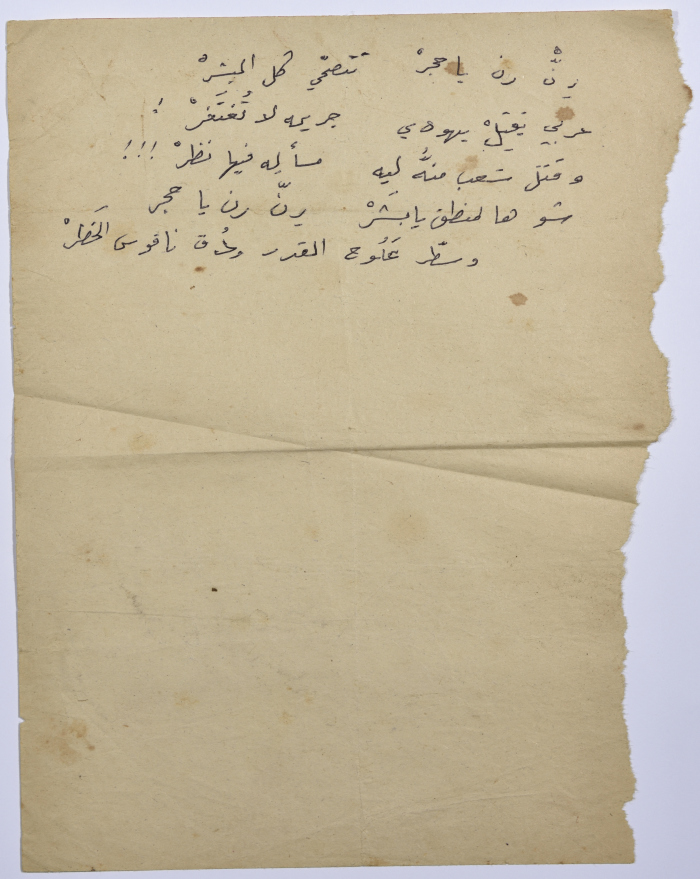 رنّْ رن يا حجرْ تتصحّي كل البشرْ
عربي يقتِلْ يهودي جريمه لا تُغتَفرْ !
وقتل شعب منُّه لِيه مسألِه فيها نظرْ !!!
شو هالمنطق يا بشَرْ رنّ رن يا حجر
وسطّر عَلُوح القدر ودُق ناقوس الخَطرْ